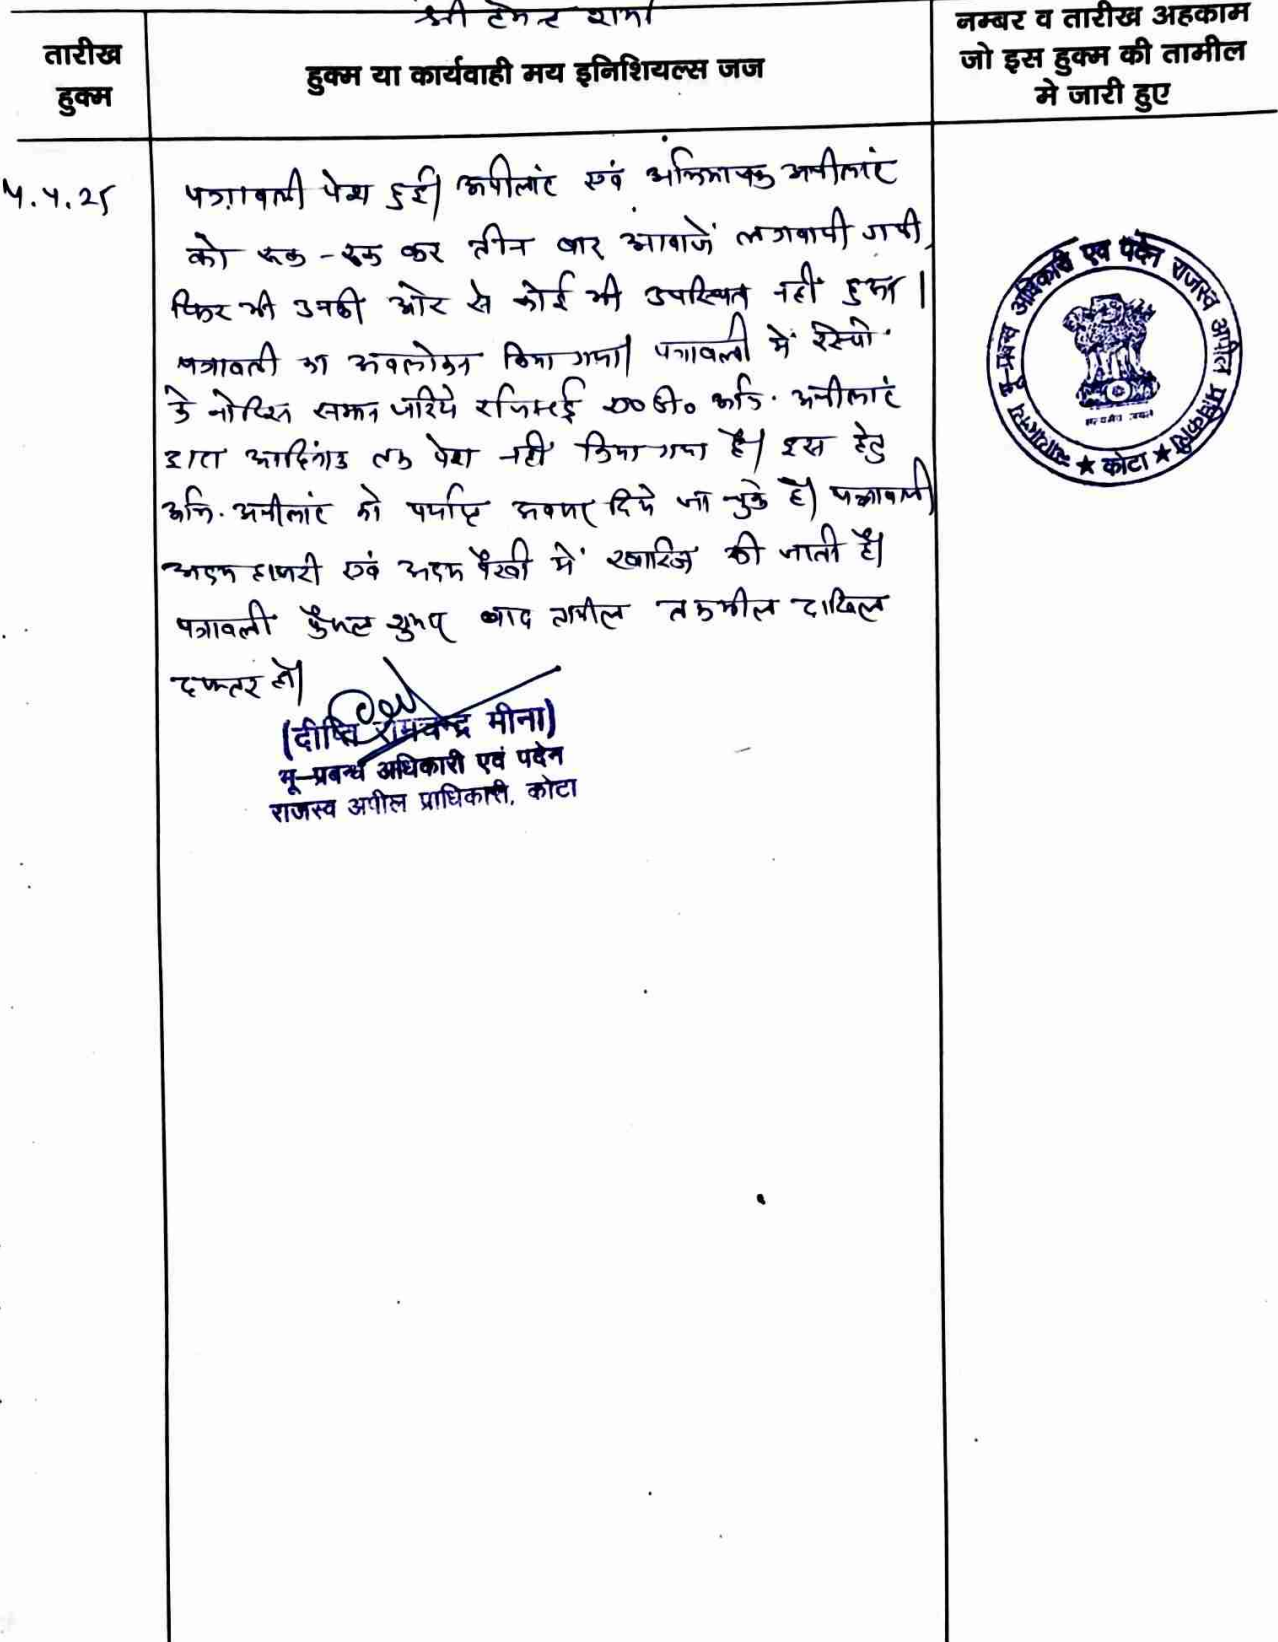 श्री हेमन्त शर्मा
तारीख
हुक्म
हुक्म या कार्यवाही मय इनिशियल्स जज
नम्बर व तारीख अहकाम
जो इस हुक्म की तामील
मे जारी हुए
4.4.25
पत्रावली पेश हुई। अपीलांट एवं अभिभाषक अपीलांट
को रूक-रूक कर तीन बार आवाजें लगवायी गयी,
फिर भी उनकी ओर से कोई भी उपस्थित नहीं हुआ।
पत्रावली का अवलोकन किया गया। पत्रावली में रेस्पो.
के नोटिस समन जरिये रजिस्टर्ड ए०डी० अभि. अपीलांट
द्वारा आदिनांक तक पेश नहीं किया गया है। इस हेतु
अभि. अपीलांट को पर्याप्त अवसर दिये जा चुके है। पत्रावली
अदम हाजरी एवं अदम पैरवी में खारिज की जाती है।
पत्रावली फैसल शुमार बाद तामील तकमील दाखिल
दफ्तर हो।
(दीप्ति रामचन्द्र मीना)
भू-प्रबन्ध अधिकारी एवं पदेन
राजस्व अपील प्राधिकारी, कोटा
न्यायालय भू-प्रबन्ध अधिकारी एवं पदेन राजस्व अपील प्राधिकारी
सत्यमेव जयते
★ कोटा ★